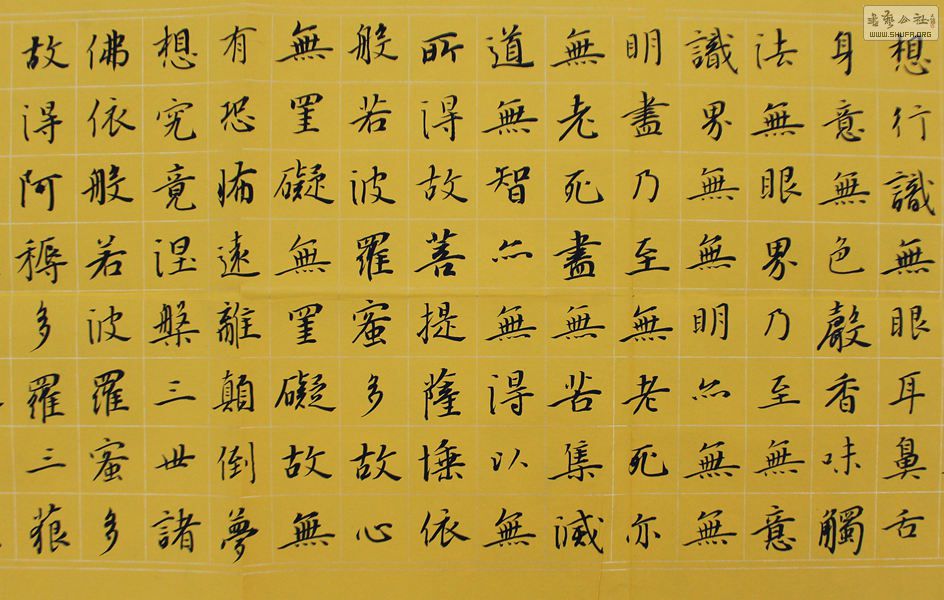 想行識無眼耳鼻舌
身意無色聲香味觸
法無眼界乃至無意
識界無無明亦無無
明盡乃至無老死亦
無老死盡無苦集滅
道無智亦無得以無
所得故菩提薩埵依
般若波羅蜜多故心
無罣礙無罣礙故無
有恐怖遠離顛倒夢
想究竟涅槃三世諸
佛依般若波羅蜜多
故得阿耨多羅三藐
書藝公社
WWW.SHUFA.ORG